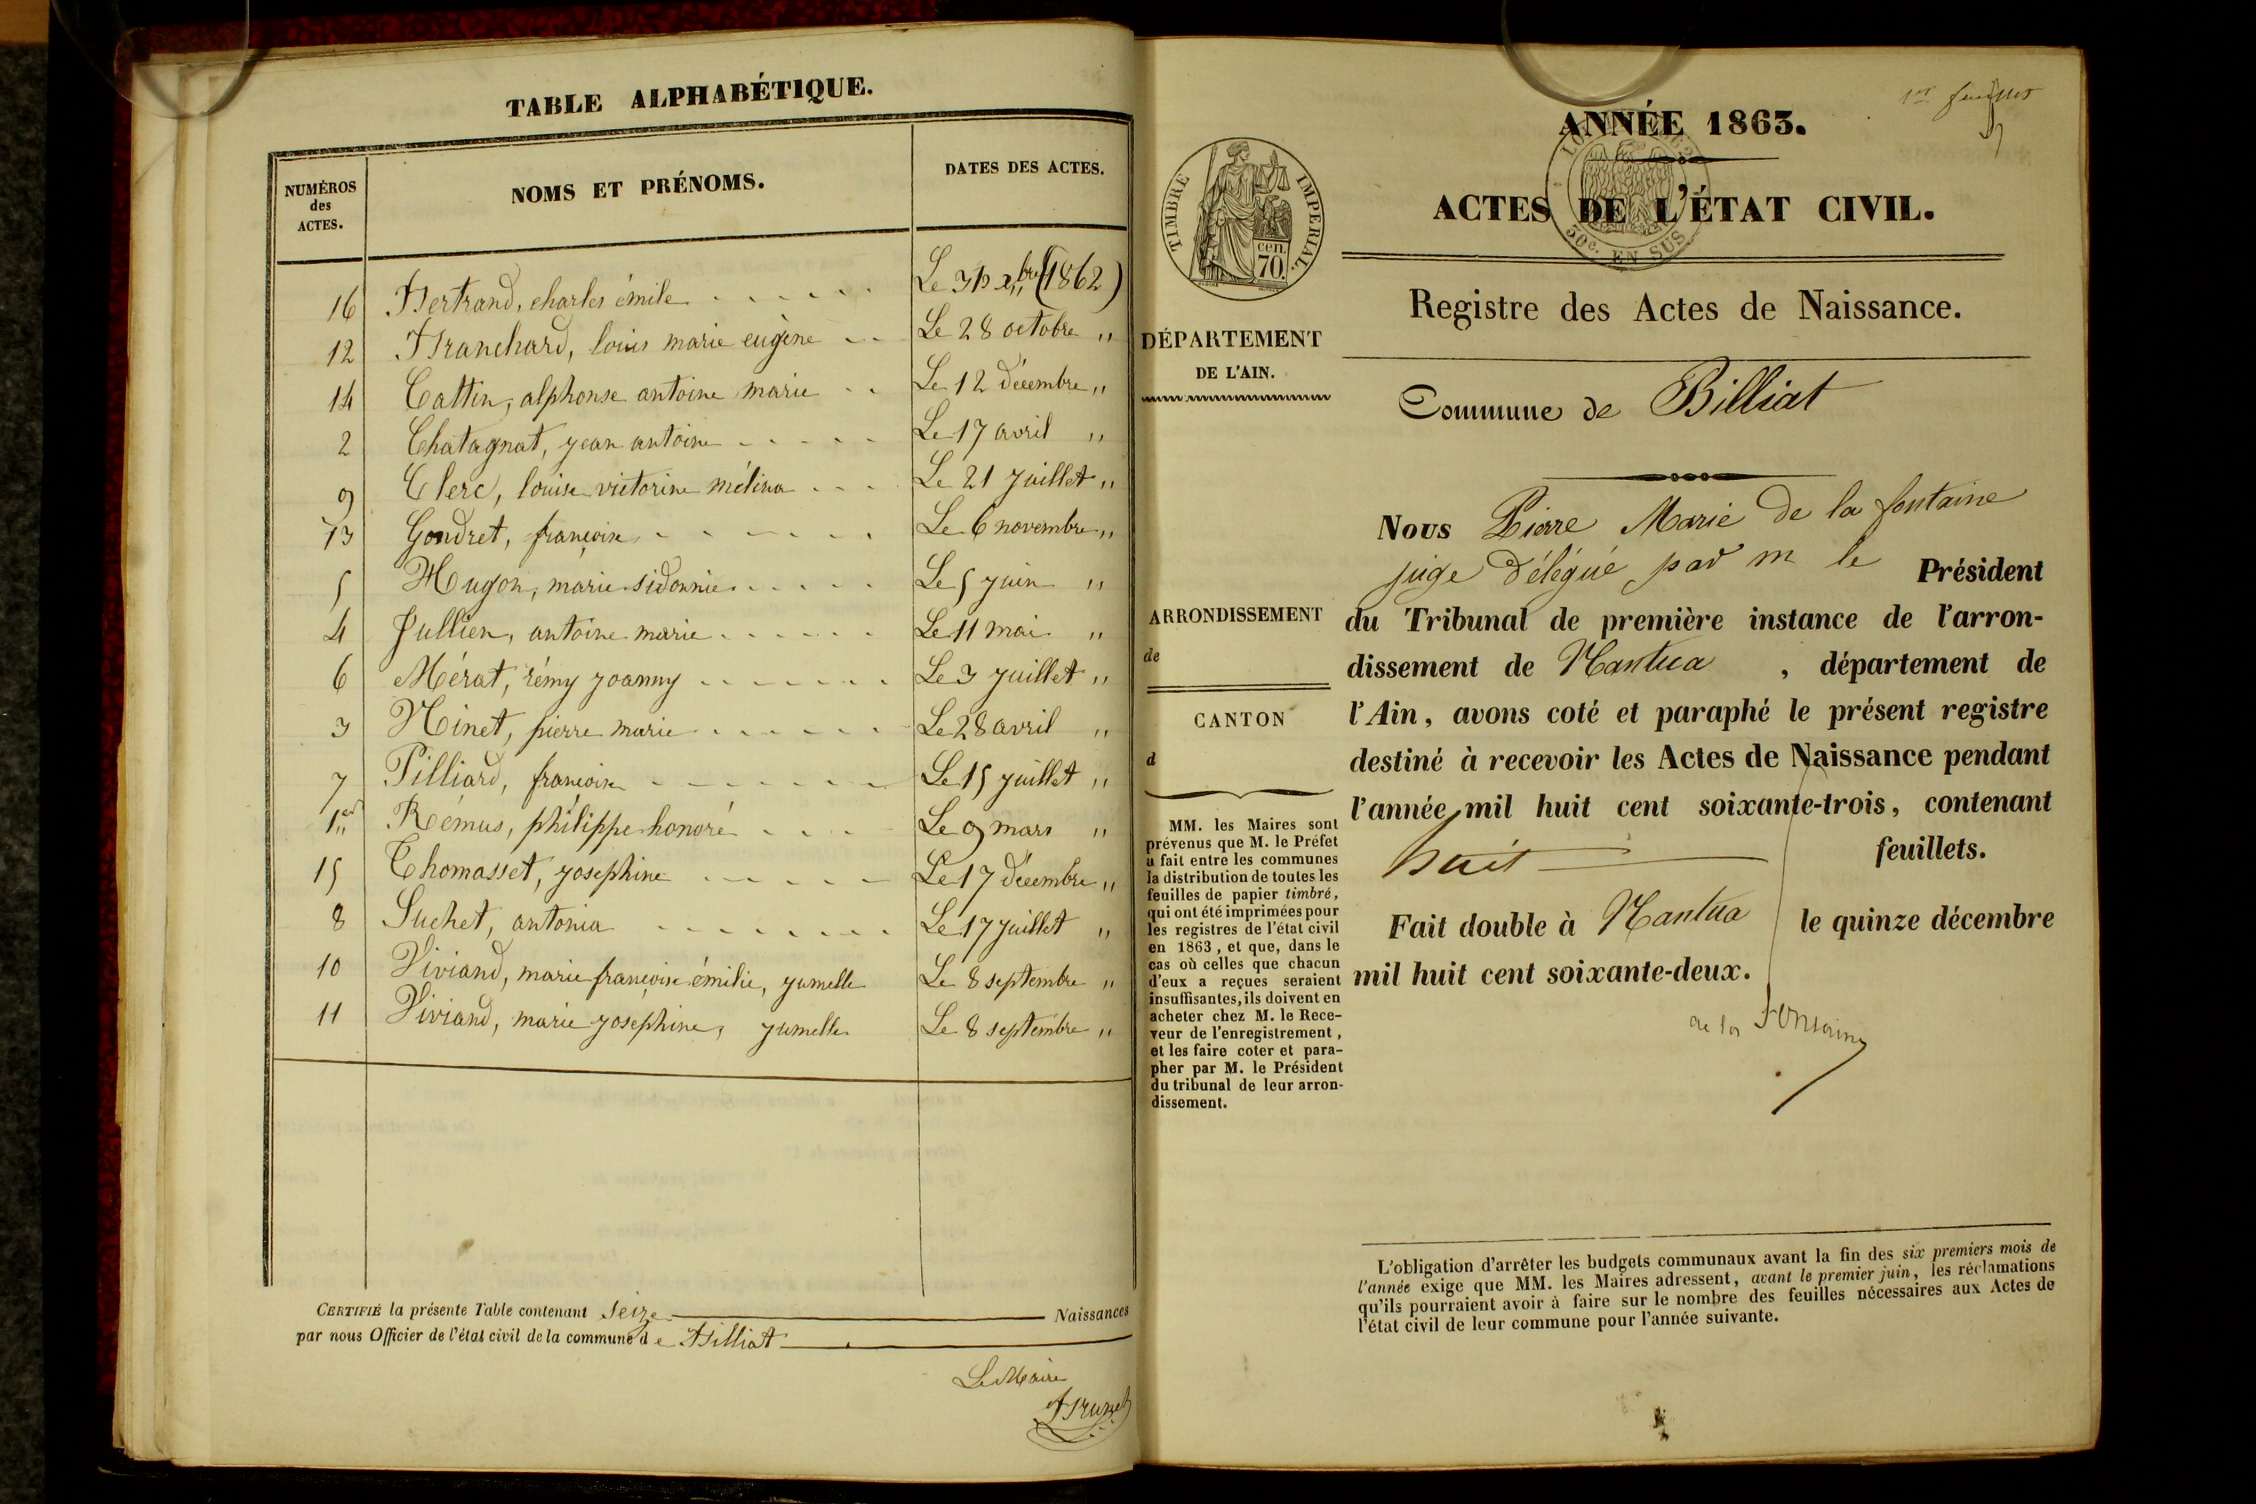 TABLE ALPHABÉTIQUE.
NUMÉROS des ACTES.
NOMS ET PRÉNOMS.
DATES DES ACTES.
16 Bertrand, charles émile Le 31 Xbre (1862)
12 Branchard, louis marie eugène Le 28 octobre "
14 Cattin, alphonse antoine marie Le 12 décembre "
2 Chatagnat, jean antoine Le 17 avril "
9 Clerc, louise victorine mélina Le 21 juillet "
13 Gondret, françoise Le 6 novembre "
5 Hugon, marie sidonnie Le 5 juin "
4 Jullien, antoine marie Le 11 mai "
6 Mérat, rémy joanny Le 3 juillet "
3 Ninet, pierre marie Le 28 avril "
7 Pilliard, françoise Le 15 juillet "
1er Rémus, philippe honoré Le 9 mars "
15 Thomasset, josephine Le 17 décembre "
8 Suchet, antonia Le 17 juillet "
10 Viviand, marie françoise émilie, jumelle Le 8 septembre "
11 Viviand, marie josephine, jumelle Le 8 septembre "
CERTIFIÉ la présente Table contenant Seize Naissances
par nous Officier de l'état civil de la commune de Billiat
Le Maire
Brunet
1er feuillet
ANNÉE 1863.
ACTES DE L'ÉTAT CIVIL.
50c. EN SUS
TIMBRE IMPERIAL.
cen.
70.
Registre des Actes de Naissance.
DÉPARTEMENT
DE L'AIN.
Commune de Billiat
ARRONDISSEMENT
de
CANTON
d
MM. les Maires sont
prévenus que M. le Préfet
a fait entre les communes
la distribution de toutes les
feuilles de papier timbré,
qui ont été imprimées pour
les registres de l'état civil
en 1863, et que, dans le
cas où celles que chacun
d'eux a reçues seraient
insuffisantes, ils doivent en
acheter chez M. le Rece-
veur de l'enregistrement,
et les faire coter et para-
pher par M. le Président
du tribunal de leur arron-
dissement.
Nous Pierre Marie De la fontaine
juge délégué par m le Président
du Tribunal de première instance de l'arron-
dissement de Nantua, département de
l'Ain, avons coté et paraphé le présent registre
destiné à recevoir les Actes de Naissance pendant
l'année mil huit cent soixante-trois, contenant
huit feuillets.
Fait double à Nantua le quinze décembre
mil huit cent soixante-deux.
de la Fontaine
L'obligation d'arrêter les budgets communaux avant la fin des six premiers mois de
l'année exige que MM. les Maires adressent, avant le premier juin, les réclamations
qu'ils pourraient avoir à faire sur le nombre des feuilles nécessaires aux Actes de
l'état civil de leur commune pour l'année suivante.